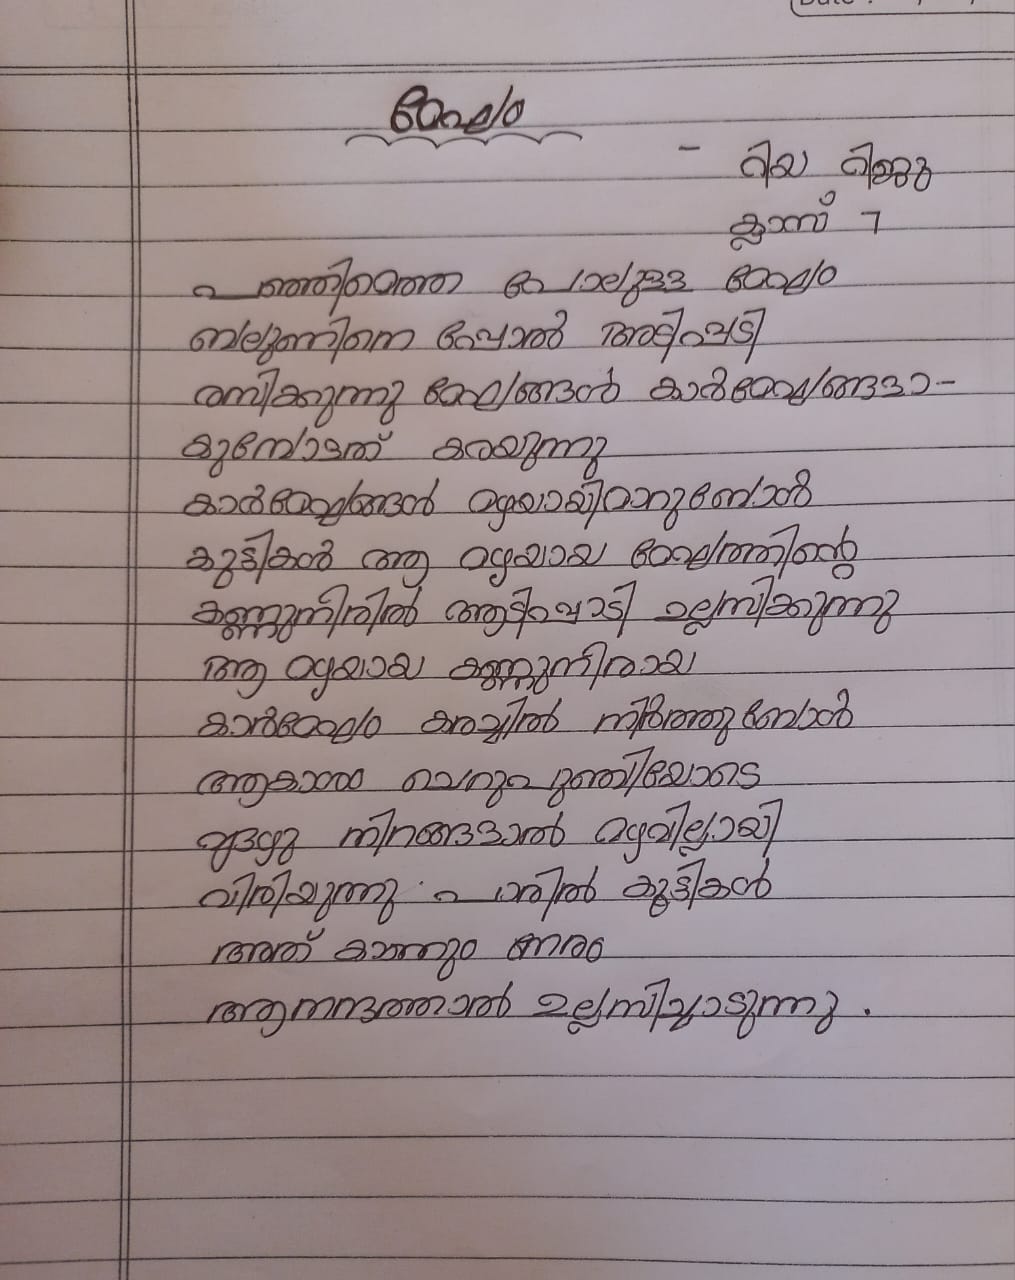 മേഘം
- റിയ റിജു
ക്ലാസ് 7
പഞ്ഞിയെന്ന പോലുള്ള മേഘം
ബലൂണിനെ പോൽ അടിപൊട്ടി
രസിക്കുന്നു മേഘങ്ങൾ കാർമേഘങ്ങളാ-
കുമ്പോളത് കരയുന്നു
കാർമേഘങ്ങൾ മഴയായിമാറുമ്പോൾ
കുട്ടികൾ ആ മഴയായ മേഘത്തിന്റെ
കണ്ണുനീരിൽ ആടിപ്പാടി ഉല്ലസിക്കുന്നു
ആ മഴയായ കണ്ണുനീരായ
കാർമേഘം കരച്ചിൽ നിർത്തുമ്പോൾ
ആകാശ ചെറുപുഞ്ചിരിയോടെ
ഏഴു നിറങ്ങളാൽ മഴവില്ലായി
വിരിയുന്നു പാരിൽ കുട്ടികൾ
അത് കാണും നേരം
ആനന്ദത്താൽ ഉല്ലസിച്ചാടുന്നു .